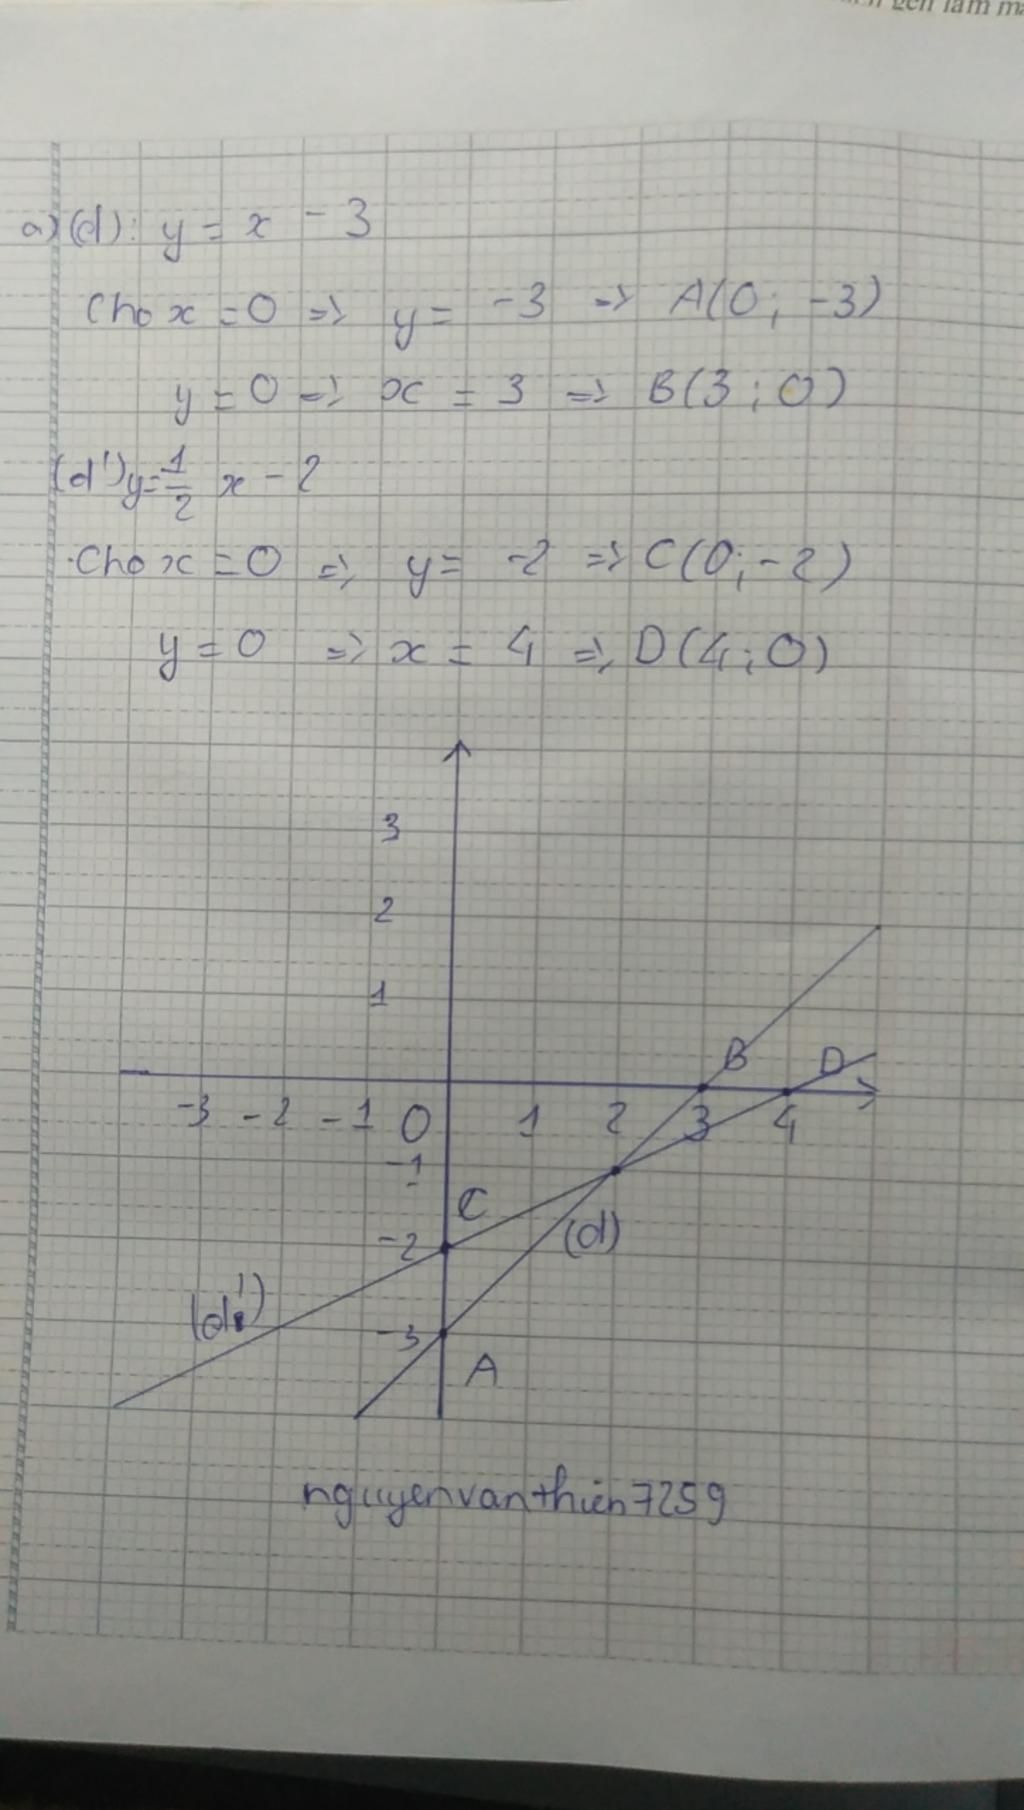 gen làm
a) (d): y = x - 3
Cho x = 0 => y = -3 => A(0; -3)
y = 0 => x = 3 => B(3; 0)
(d') y = 1/2 x - 2
Cho x = 0 => y = -2 => C(0; -2)
y = 0 => x = 4 => D(4; 0)
3
2
1
B D
-3 -2 -1 0 1 2 3 4
-1
C
-2 (d)
(d')
-3
A
nguyenvanthien7259